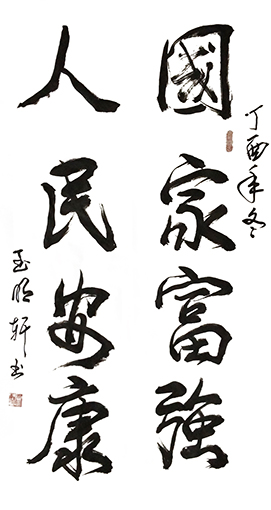 丁酉年冬
國家富強
人民安康
玉明軒書